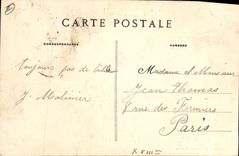 CARTE POSTALE
CORRESPONDANCE
Toujours pas de
J. Molinier
Madame et Monsieur
Jean Thomas
rue des Fermiers
Paris